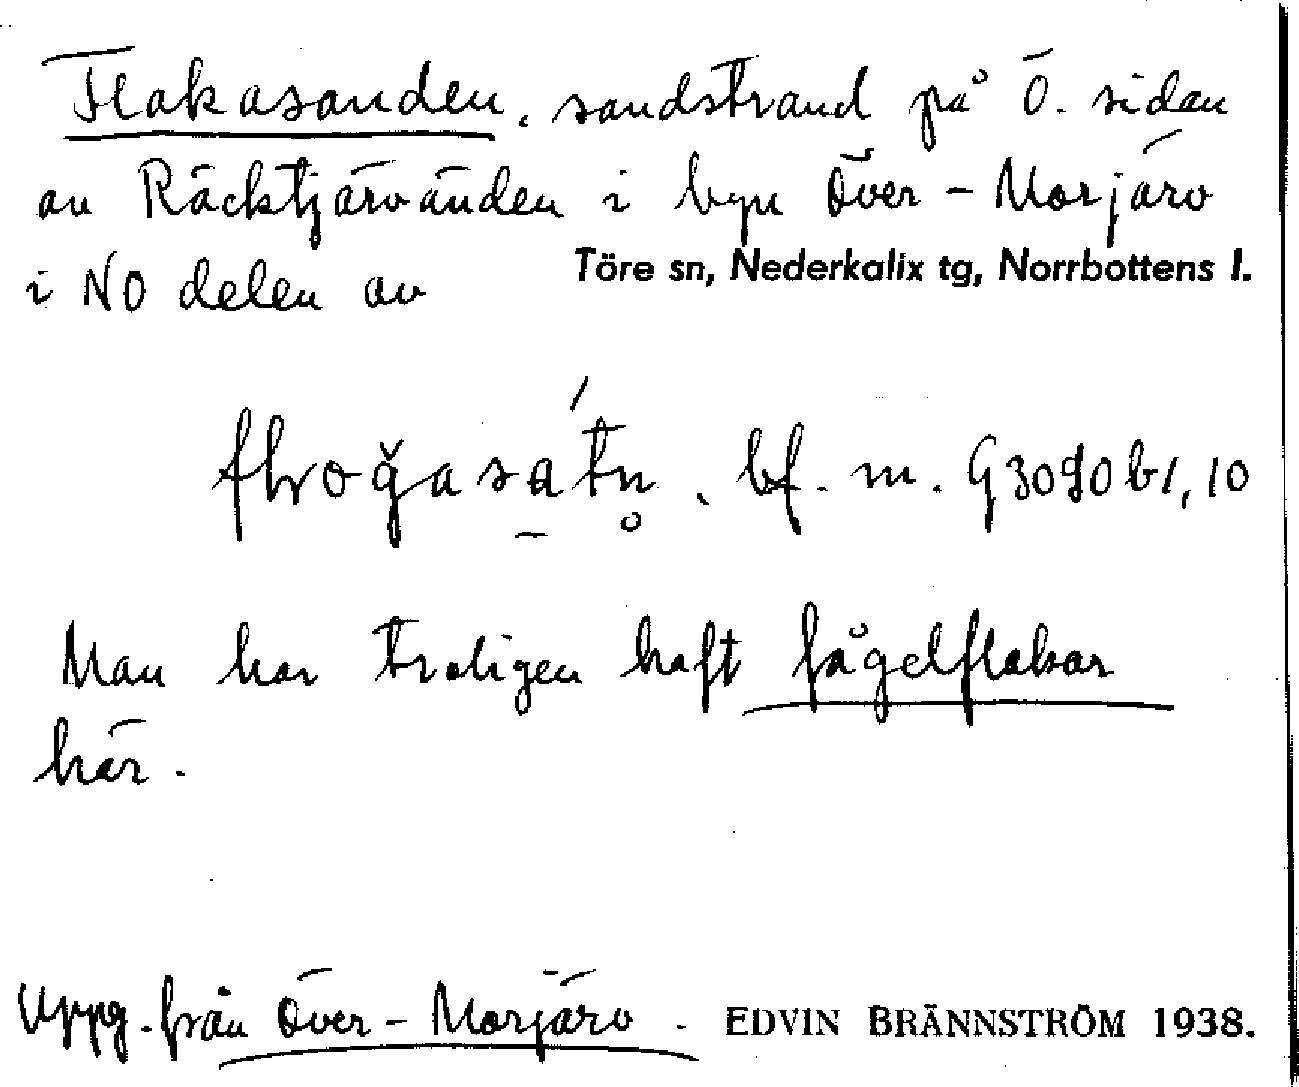 Flakasanden, sandstrand på Ö. sidan
av Räcktjärvänden i byn Över-Morjärv
i NO delen av Töre sn, Nederkalix tg, Norrbottens l.
bf. m.
Man har troligen haft fågelflakar
här.
Uppg. från Över-Morjärv. EDVIN BRÄNNSTRÖM 1938.